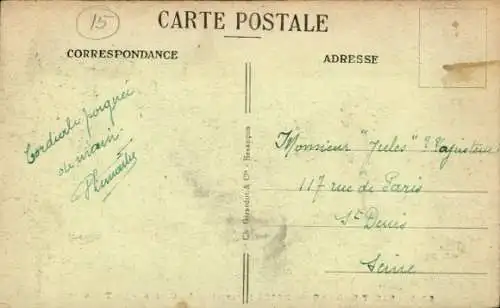 15
CARTE POSTALE
CORRESPONDANCE
ADRESSE
Cordiale poignée
de main
Monsieur "Jules"
117 rue de Paris
St Denis
Seine
Ch. Girardot & Cie - Besançon